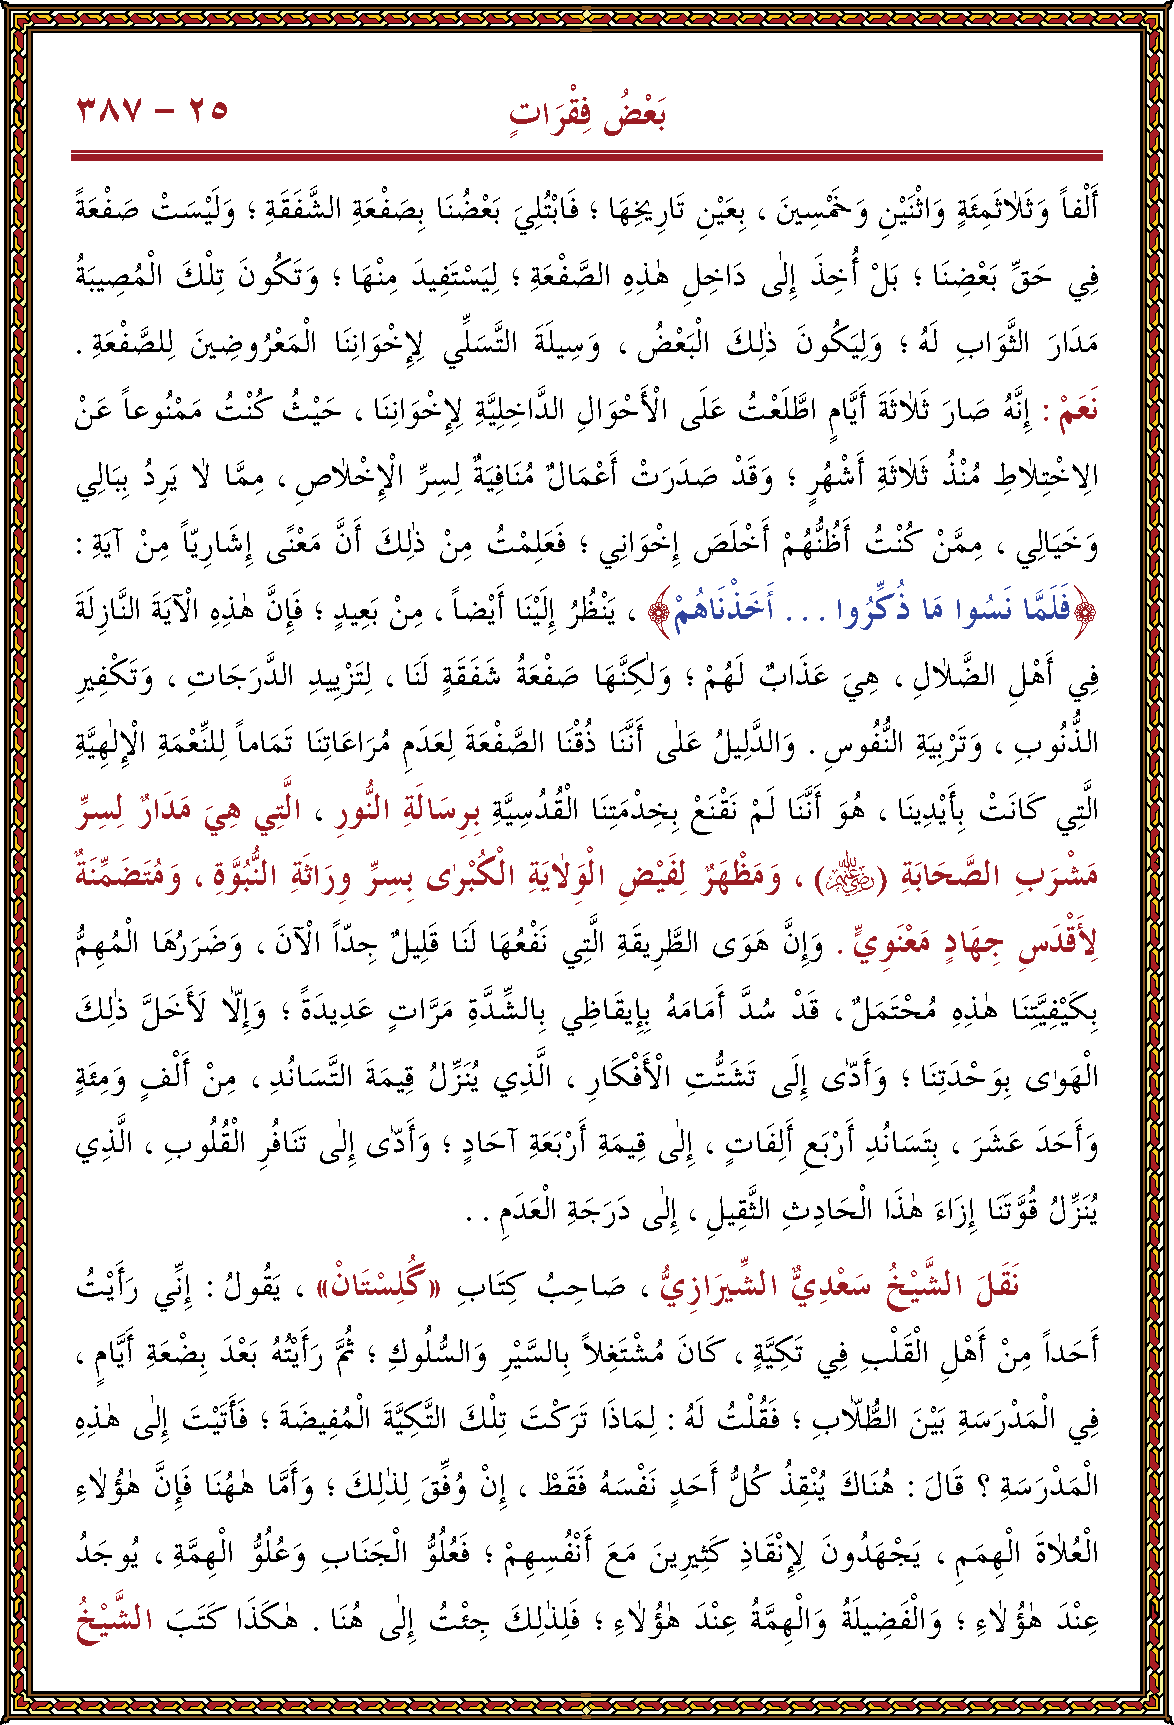 بَعْضُ فِقْرَاتٍ
٢٥ – ٣٨٧
أَلْفاً وَثَلاٰثَمِئَةٍ وَاثْنَيْنِ وَخَمْسِينَ ، بِعَيْنِ تَارِيخِهَا ؛ فَابْتُلِيَ بَعْضُنَا بِصَفْعَةِ الشَّفَقَةِ ؛ وَلَيْسَتْ صَفْعَةً
فِي حَقِّ بَعْضِنَا ؛ بَلْ أُخِذَ إِلٰى دَاخِلِ هٰذِهِ الصَّفْعَةِ ؛ لِيَسْتَفِيدَ مِنْهَا ؛ وَتَكُونَ تِلْكَ الْمُصِيبَةُ
مَدَارَ الثَّوَابِ لَهُ ؛ وَلِيَكُونَ ذٰلِكَ الْبَعْضُ ، وَسِيلَةَ التَّسَلِّي لِإِخْوَانِنَا الْمَعْرُوضِينَ لِلصَّفْعَةِ .
نَعَمْ : إِنَّهُ صَارَ ثَلاٰثَةَ أَيَّامٍ اطَّلَعْتُ عَلَى الْأَحْوَالِ الدَّاخِلِيَّةِ لِإِخْوَانِنَا ، حَيْثُ كُنْتُ مَمْنُوعاً عَنْ
الِاخْتِلاٰطِ مُنْذُ ثَلاٰثَةِ أَشْهُرٍ ؛ وَقَدْ صَدَرَتْ أَعْمَالٌ مُنَافِيَةٌ لِسِرِّ الْإِخْلاٰصِ ، مِمَّا لاٰ يَرِدُ بِبَالِي
وَخَيَالِي ، مِمَّنْ كُنْتُ أَظُنُّهُمْ أَخْلَصَ إِخْوَانِي ؛ فَعَلِمْتُ مِنْ ذٰلِكَ أَنَّ مَعْنًى إِشَارِيّاً مِنْ آيَةِ :
﴿فَلَمَّا نَسُوا مَا ذُكِّرُوا ... أَخَذْنَاهُمْ﴾ ، يَنْظُرُ إِلَيْنَا أَيْضاً ، مِنْ بَعِيدٍ ؛ فَإِنَّ هٰذِهِ الْآيَةَ النَّازِلَةَ
فِي أَهْلِ الضَّلاٰلِ ، هِيَ عَذَابٌ لَهُمْ ؛ وَلٰكِنَّهَا صَفْعَةُ شَفَقَةٍ لَنَا ، لِتَزْيِيدِ الدَّرَجَاتِ ، وَتَكْفِيرِ
الذُّنُوبِ ، وَتَرْبِيَةِ النُّفُوسِ . وَالدَّلِيلُ عَلٰى أَنَّنَا ذُقْنَا الصَّفْعَةَ لِعَدَمِ مُرَاعَاتِنَا تَمَاماً لِلنِّعْمَةِ الْإِلٰهِيَّةِ
الَّتِي كَانَتْ بِأَيْدِينَا ، هُوَ أَنَّنَا لَمْ نَقْنَعْ بِخِدْمَتِنَا الْقُدُسِيَّةِ بِرِسَالَةِ النُّورِ ، الَّتِي هِيَ مَدَارٌ لِسِرِّ
مَشْرَبِ الصَّحَابَةِ (ﷺ) ، وَمَظْهَرٌ لِفَيْضِ الْوَلاٰيَةِ الْكُبْرٰى بِسِرِّ وِرَاثَةِ النُّبُوَّةِ ، وَمُتَضَمِّنَةٌ
لِأَقْدَسِ جِهَادٍ مَعْنَوِيٍّ . وَإِنَّ هَوَى الطَّرِيقَةِ الَّتِي نَفْعُهَا لَنَا قَلِيلٌ جِدّاً الْآنَ ، وَضَرَرُهَا الْمُهِمُّ
بِكَيْفِيَّتِنَا هٰذِهِ مُحْتَمَلٌ ، قَدْ سُدَّ أَمَامَهُ بِإِيقَاظِي بِالشِّدَّةِ مَرَّاتٍ عَدِيدَةً ؛ وَإِلّاٰ لَأَخَلَّ ذٰلِكَ
الْهَوٰى بِوَحْدَتِنَا ؛ وَأَدّٰى إِلَى تَشَتُّتِ الْأَفْكَارِ ، الَّذِي يُنَزِّلُ قِيمَةَ التَّسَانُدِ ، مِنْ أَلْفٍ وَمِئَةٍ
وَأَحَدَ عَشَرَ ، بِتَسَانُدِ أَرْبَعِ أَلِفَاتٍ ، إِلٰى قِيمَةِ أَرْبَعَةِ آحَادٍ ؛ وَأَدّٰى إِلٰى تَنَافُرِ الْقُلُوبِ ، الَّذِي
يُنَزِّلُ قُوَّتَنَا إِزَاءَ هٰذَا الْحَادِثِ الثَّقِيلِ ، إِلٰى دَرَجَةِ الْعَدَمِ . .
نَقَلَ الشَّيْخُ سَعْدِيٌّ الشِّيرَازِيُّ ، صَاحِبُ كِتَابِ «گُلِسْتَانْ» ، يَقُولُ : إِنِّي رَأَيْتُ
أَحَداً مِنْ أَهْلِ الْقَلْبِ فِي تَكِيَّةٍ ، كَانَ مُشْتَغِلاً بِالسَّيْرِ وَالسُّلُوكِ ؛ ثُمَّ رَأَيْتُهُ بَعْدَ بِضْعَةِ أَيَّامٍ ،
فِي الْمَدْرَسَةِ بَيْنَ الطُّلّاٰبِ ؛ فَقُلْتُ لَهُ : لِمَاذَا تَرَكْتَ تِلْكَ التَّكِيَّةَ الْمُفِيضَةَ ؛ فَأَتَيْتَ إِلٰى هٰذِهِ
الْمَدْرَسَةِ ؟ قَالَ : هُنَاكَ يُنْقِذُ كُلُّ أَحَدٍ نَفْسَهُ فَقَطْ ، إِنْ وُفِّقَ لِذٰلِكَ ؛ وَأَمَّا هٰهُنَا فَإِنَّ هٰؤُلاٰءِ
الْعُلاٰةَ الْهِمَمِ ، يَجْهَدُونَ لِإِنْقَاذِ كَثِيرِينَ مَعَ أَنْفُسِهِمْ ؛ فَعُلُوُّ الْجَنَابِ وَعُلُوُّ الْهِمَّةِ ، يُوجَدُ
عِنْدَ هٰؤُلاٰءِ ؛ وَالْفَضِيلَةُ وَالْهِمَّةُ عِنْدَ هٰؤُلاٰءِ ؛ فَلِذٰلِكَ جِئْتُ إِلٰى هُنَا . هٰكَذَا كَتَبَ الشَّيْخُ